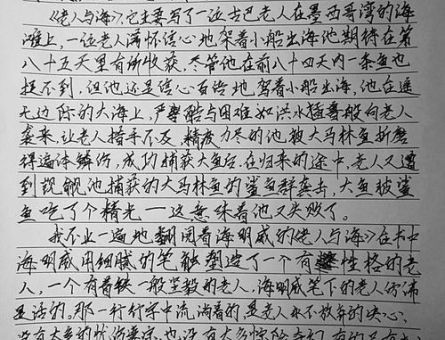 《老人与海》,它主要写了一位古巴老人在墨西哥湾的海
滩上,一位老人满怀信心地驾着小船出海他期待在第
八十五天里有所收获,尽管他在前八十四天内一条鱼也
捉不到,但他还是信心百倍地驾着小船出海,他在遥
无边际的大海上,严酷与困难如洪水猛兽般向老人
袭来,让老人措手不及,精疲力尽的他被大马林鱼折磨
得遍体鳞伤,成功捕获大鱼后,在归来的途中,老人又遭
到觊觎他捕获的大马林鱼的鲨鱼群袭击,大鱼被鲨
鱼吃了个精光一这意味着他又失败了。
我不止一遍地翻阅着海明威的《老人与海》在书中
海明威用细腻的笔触塑造了一个有性格的老
人,一个有着铁一般坚毅的老人,海明威笔下的老人
是活的。那一行行字中流淌着的是老人永不放弃的决心,